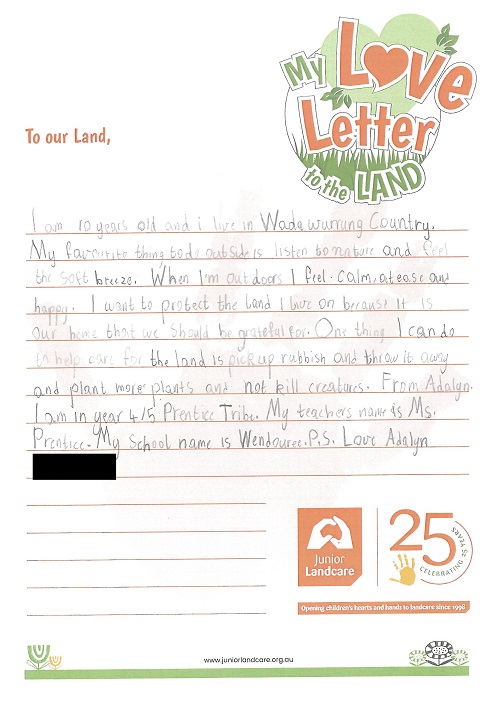 My Love
Letter
to the LAND
To our Land,
I am 10 years old and i live in Wadawurrung Country.
My favourite thing to do outside is listen to nature and feel
the soft breeze. When I'm outdoors I feel calm, at ease and
happy. I want to protect the land I live on because it is
our home that we should be grateful for. One thing I can do
to help care for the land is pick up rubbish and throw it away
and plant more plants and not kill creatures. From Adalyn.
I am in year 4/5 Prentice Tribe. My teachers name is Ms.
Prentice. My School name is Wendouree. P.S. Love Adalyn
Junior
Landcare
25
CELEBRATING 25 YEARS
Opening children's hearts and hands to landcare since 1998
www.juniorlandcare.org.au